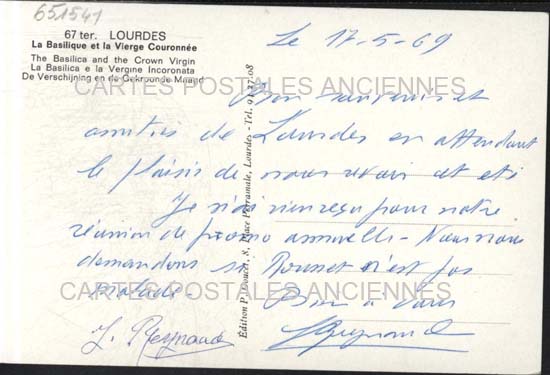 651541
67 ter. LOURDES
La Basilique et la Vierge Couronnée
The Basilica and the Crown Virgin
La Basilica e la Vergine Incoronata
De Verschijning en de Gekroonde Maagd
CARTES POSTALES ANCIENNES
Le 17-5-69
Bon souvenir et
amitiés de Lourdes en attendant
le plaisir de nous revoir cet été
Je n'ai rien reçu pour notre
réunion de promo annuelle - Nous nous
demandons si Rousset n'est pas
malade -
Bien à vous
J. Reynaud
Édition P. Doucet, 8, Place Peyramale, Lourdes - Tél. 94.27.08
CARTES POSTALES ANCIENNES